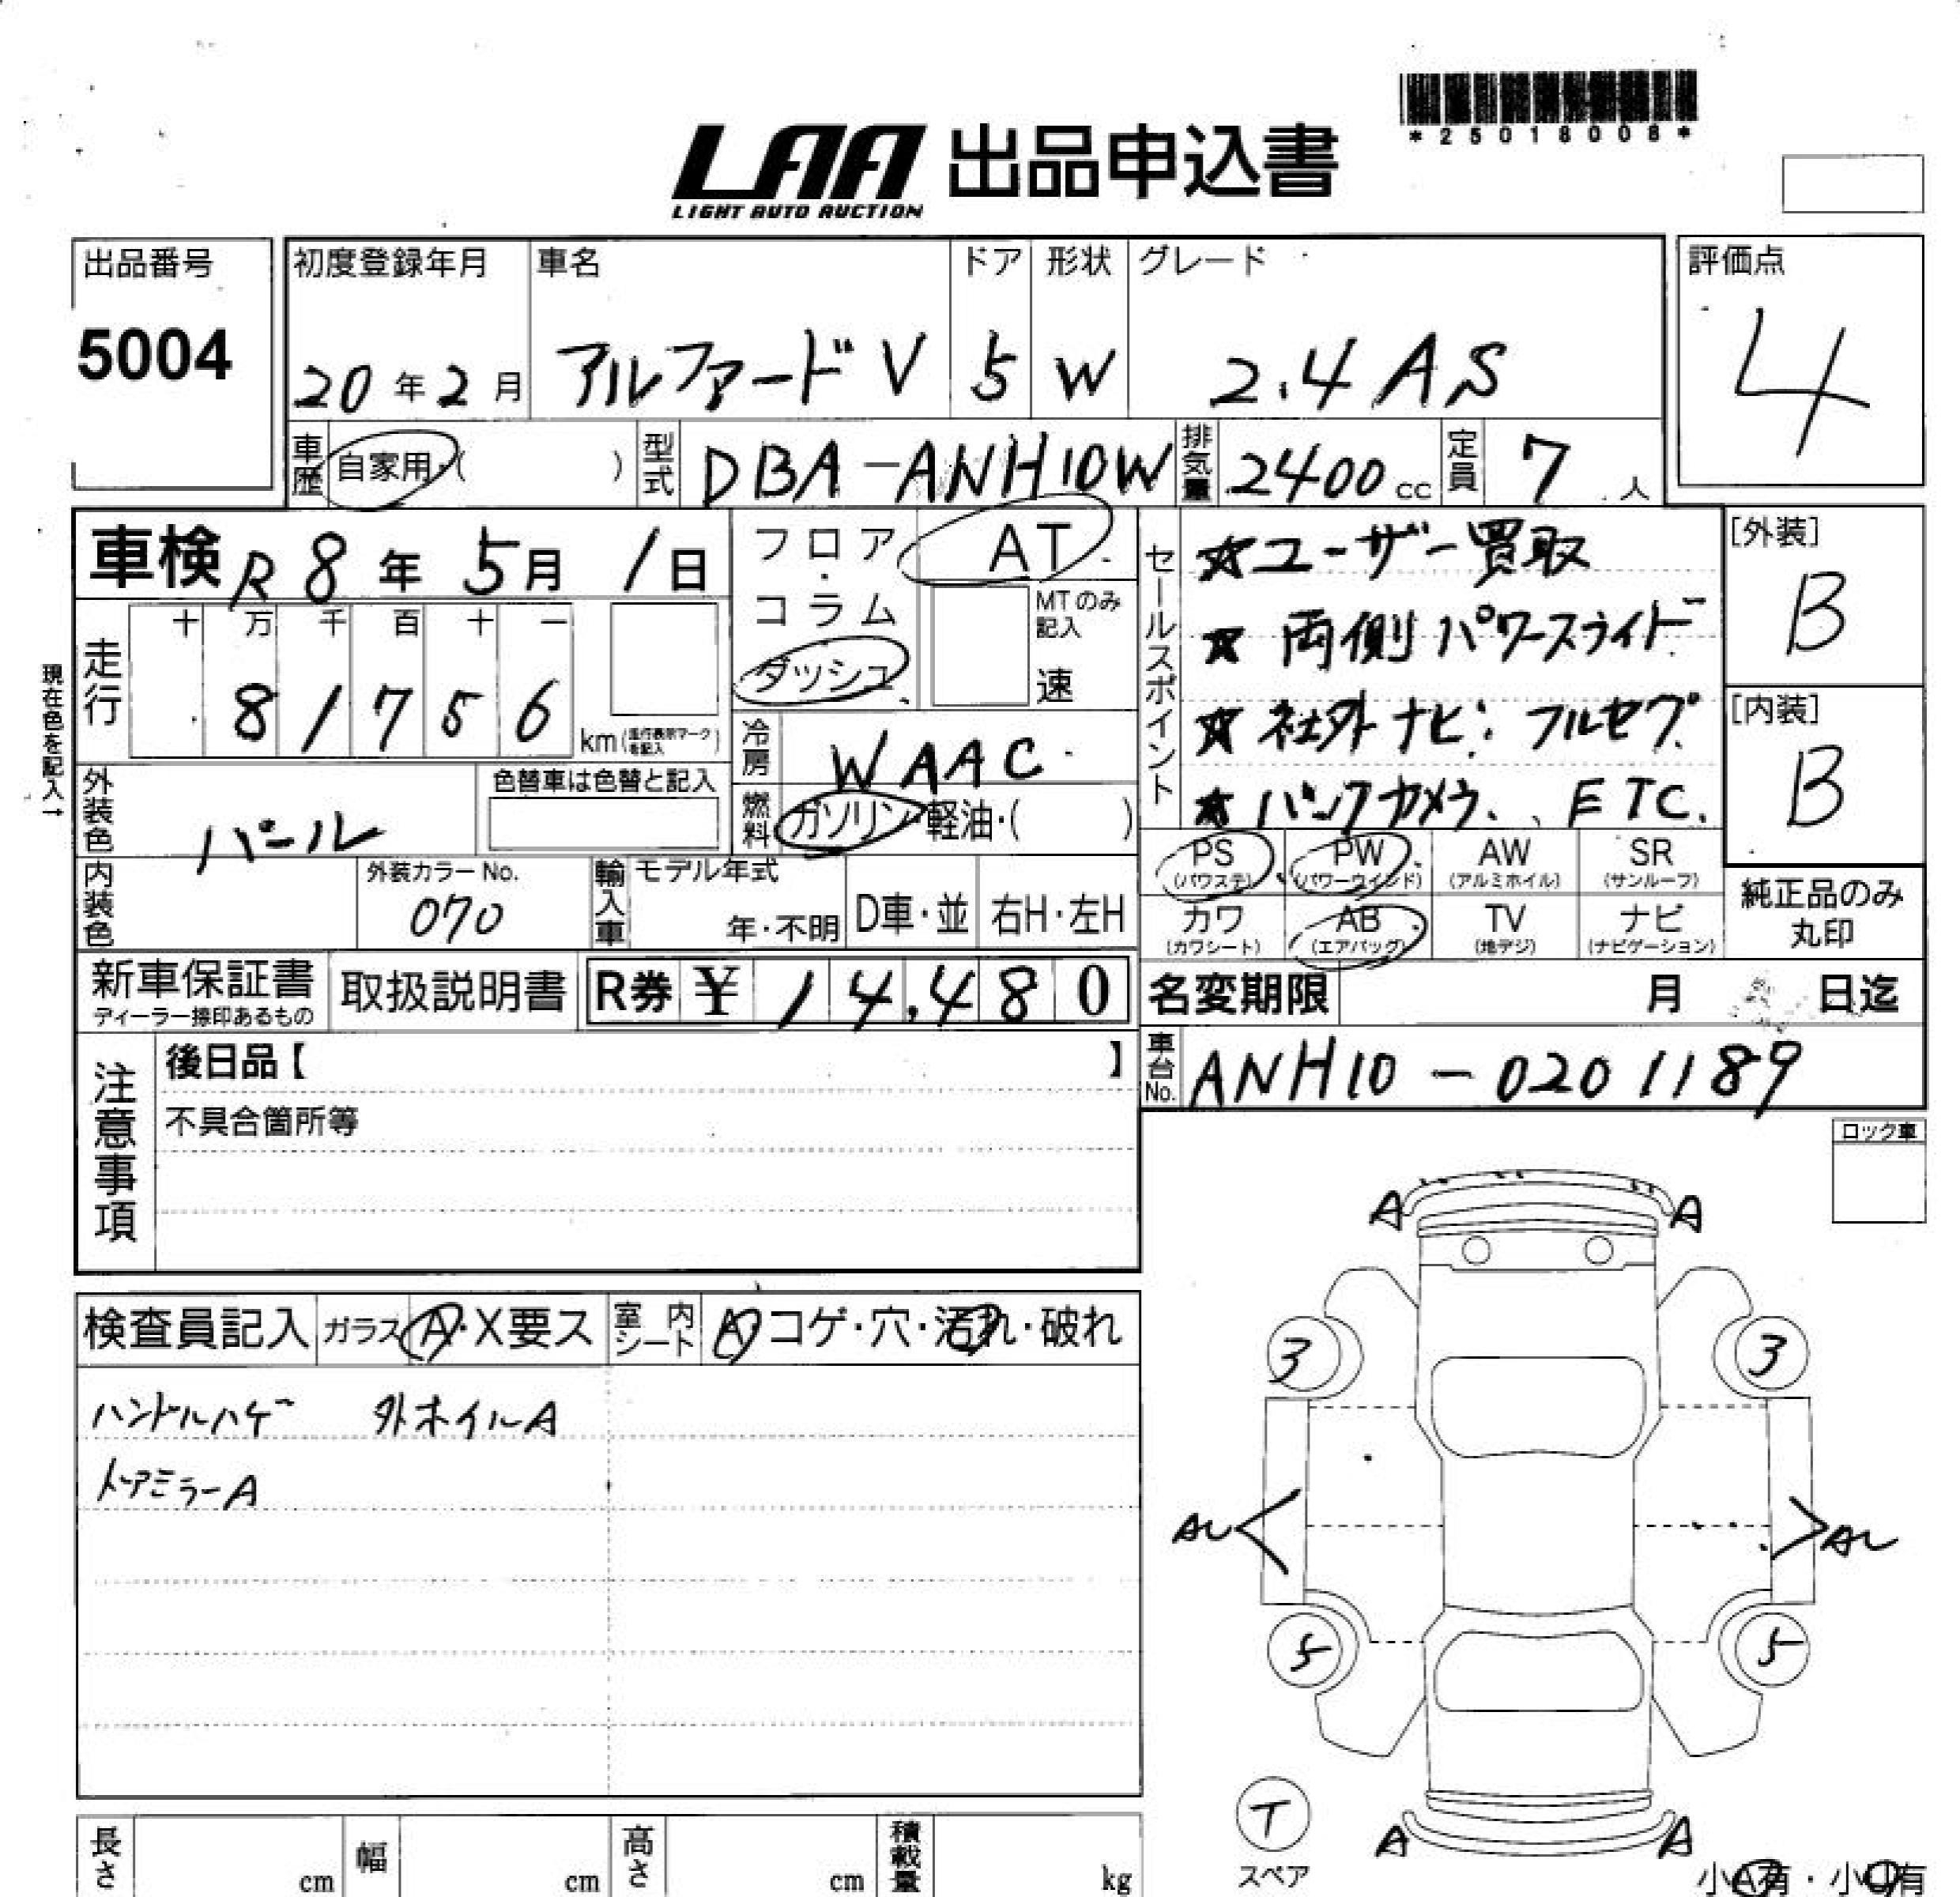 *25018008*
LAA 出品申込書
LIGHT AUTO AUCTION
出品番号
5004
初度登録年月 車名 ドア 形状 グレード
20年2月 アルファードV 5 W 2.4 AS
評価点
4
車歴 自家用・( ) 型式 DBA-ANH10W 排気量 2400cc 定員 7人
車検 R8年5月1日
フロア・コラム
ダッシュ
AT
MTのみ記入
速
セールスポイント
☆ユーザー買取
☆両側パワースライド
☆社外ナビ:フルセグ
☆バックカメラ、ETC.
[外装]
B
[内装]
B
現在色を記入→
走行
十 万 千 百 十 一
8 1 7 5 6 km(走行表示マークを記入)
冷房 WAAC
燃料 ガソリン・軽油・( )
外装色 パール
色替車は色替と記入
内装色
外装カラーNo.
070
輸入車 モデル年式
年・不明 D車・並 右H・左H
PS (パワステ) PW (パワーウインド) AW (アルミホイル) SR (サンルーフ)
カワ (カワシート) AB (エアバッグ) TV (地デジ) ナビ (ナビゲーション)
純正品のみ
丸印
新車保証書
ディーラー捺印あるもの
取扱説明書 R券 ¥14,480
名変期限 月 日迄
車台No. ANH10-0201189
注意事項
後日品【 】
不具合箇所等
ロック車
検査員記入 ガラス A・X要ス 室内シート A・コゲ・穴・汚れ・破れ
ハンドルハゲ 外ホイルA
ドアミラーA
A A
3 3
AU AU
5 5
T
スペア
A A
小A有・小U有
長さ cm 幅 cm 高さ cm 積載量 kg